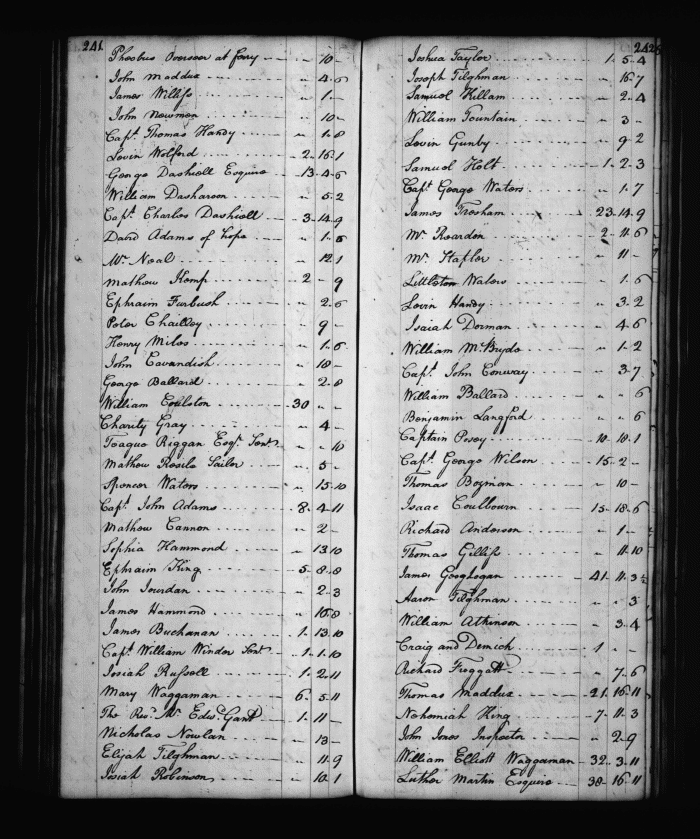 241
Phoebus Overseer at ferry 〃 10 -
John Maddux 〃 4 - 6
James Williss 〃 1 -
John Newman 〃 10 -
Capt. Thomas Handy 〃 1 - 8
Levin Wolford 2 - 15 - 1
George Dashiell Esquire 13 - 4 - 6
William Dashiroon 〃 5 - 2
Capt. Charles Dashiell 3 - 14 - 9
David Adams of hope 〃 1 - 6
Mr. Neal 〃 12 1
Mathew Kemp 2 - 〃 9
Ephraim Furbush 〃 2 - 6
Peter Chailley 〃 9 -
Henry Miles 〃 1 - 6
John Cavendish 〃 18 -
George Ballard 〃 2 - 8
William Coulston 30 〃 〃
Charity Gray 〃 4 -
Teague Riggan Esqr. Senr. 〃 〃 10
Mathew Sailor 〃 5 -
Spencer Waters 〃 15 - 10
Capt. John Adams 8 - 4 - 11
Mathew Cannon 〃 2 -
Sophia Hammond 〃 13 10
Ephraim King 5 - 8 - 8
John Jourdan 〃 2 - 3
James Hammond 〃 16 - 8
James Buchanan 1 - 13 - 10
Capt. William Winder Senr. 1 - 1 - 10
Josiah Russell 1 - 2 - 11
Mary Waggaman 6 - 5 - 11
The Revd. Mr. Edwd. Gant 1 - 11 -
Nicholas Nowlan 〃 13 -
Elijah Tilghman 〃 11 - 9
Josiah Robinson 〃 10 - 1
242
Joshua Taylor 1 - 5 - 4
Joseph Tilghman 〃 16 - 7
Samuel Killam 〃 2 - 4
William Fountain 〃 3 -
Levin Gunby 〃 9 - 2
Samuel Holt 1 - 2 - 3
Capt. George Waters 〃 1 - 7
James Tresham 23 - 14 - 9
Mr. Reardon 2 - 11 - 6
Mr. Stapler 〃 11 -
Littleton Waters 1 - 6
Levin Handy 〃 3 - 2
Isaiah Dorman 〃 4 - 6
William McBryde 〃 1 - 2
Capt. John Conway 〃 3 - 7
William Ballard 〃 〃 6
Benjamin Langford 〃 〃 6
Captain Posey 10 - 18 - 1
Capt. George Wilson 15 - 2 -
Thomas Bozman 〃 10 -
Isaac Coulbourn 15 - 18 - 6
Richard Anderson 〃 1 -
Thomas Gilliss 〃 11 - 10
James Geoghegan 41 - 11 - 3½
Aaron Tilghman 〃 〃 3
William Atkinson 〃 3 - 4
Craig and Dimich 1 〃 -
Richard Froggatt 〃 7 - 6
Thomas Maddux 21 - 16 - 11
Nehemiah King 7 - 11 - 3
John Jones Inspector 〃 2 - 9
William Elliott Waggaman 32 - 3 - 11
Luther Martin Esquire 38 - 16 - 11